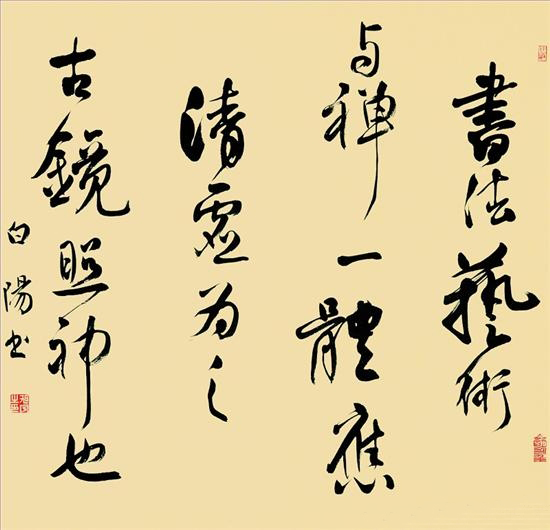 書法藝術
与禪一體應
清虛为之
古鏡照神也
白陽书